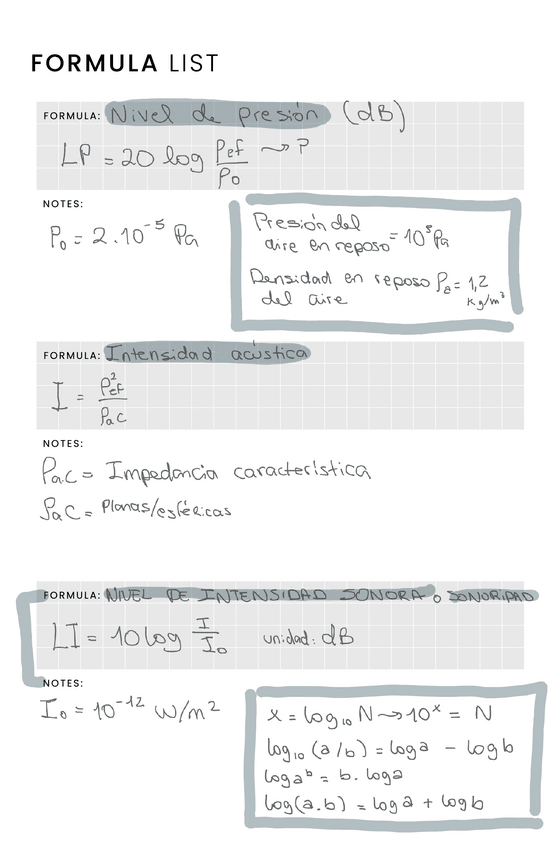 FORMULA LIST
FORMULA: Nivel de presión (dB)
LP = 20 log Pef/Po → P
NOTES:
Po = 2.10⁻⁵ Pa
Presión del
aire en reposo = 10⁵ Pa
Densidad en reposo ρa = 1,2
del aire kg/m³
FORMULA: Intensidad acústica
I = P²ef/ρac
NOTES:
ρac = Impedancia característica
ρac = Planas/esféricas
FORMULA: NIVEL DE INTENSIDAD SONORA o SONORIDAD
LI = 10 log I/Io unidad: dB
NOTES:
Io = 10⁻¹² W/m²
x = log₁₀ N → 10ˣ = N
log₁₀ (a/b) = log a - log b
log aᵇ = b. log a
log(a.b) = log a + log b